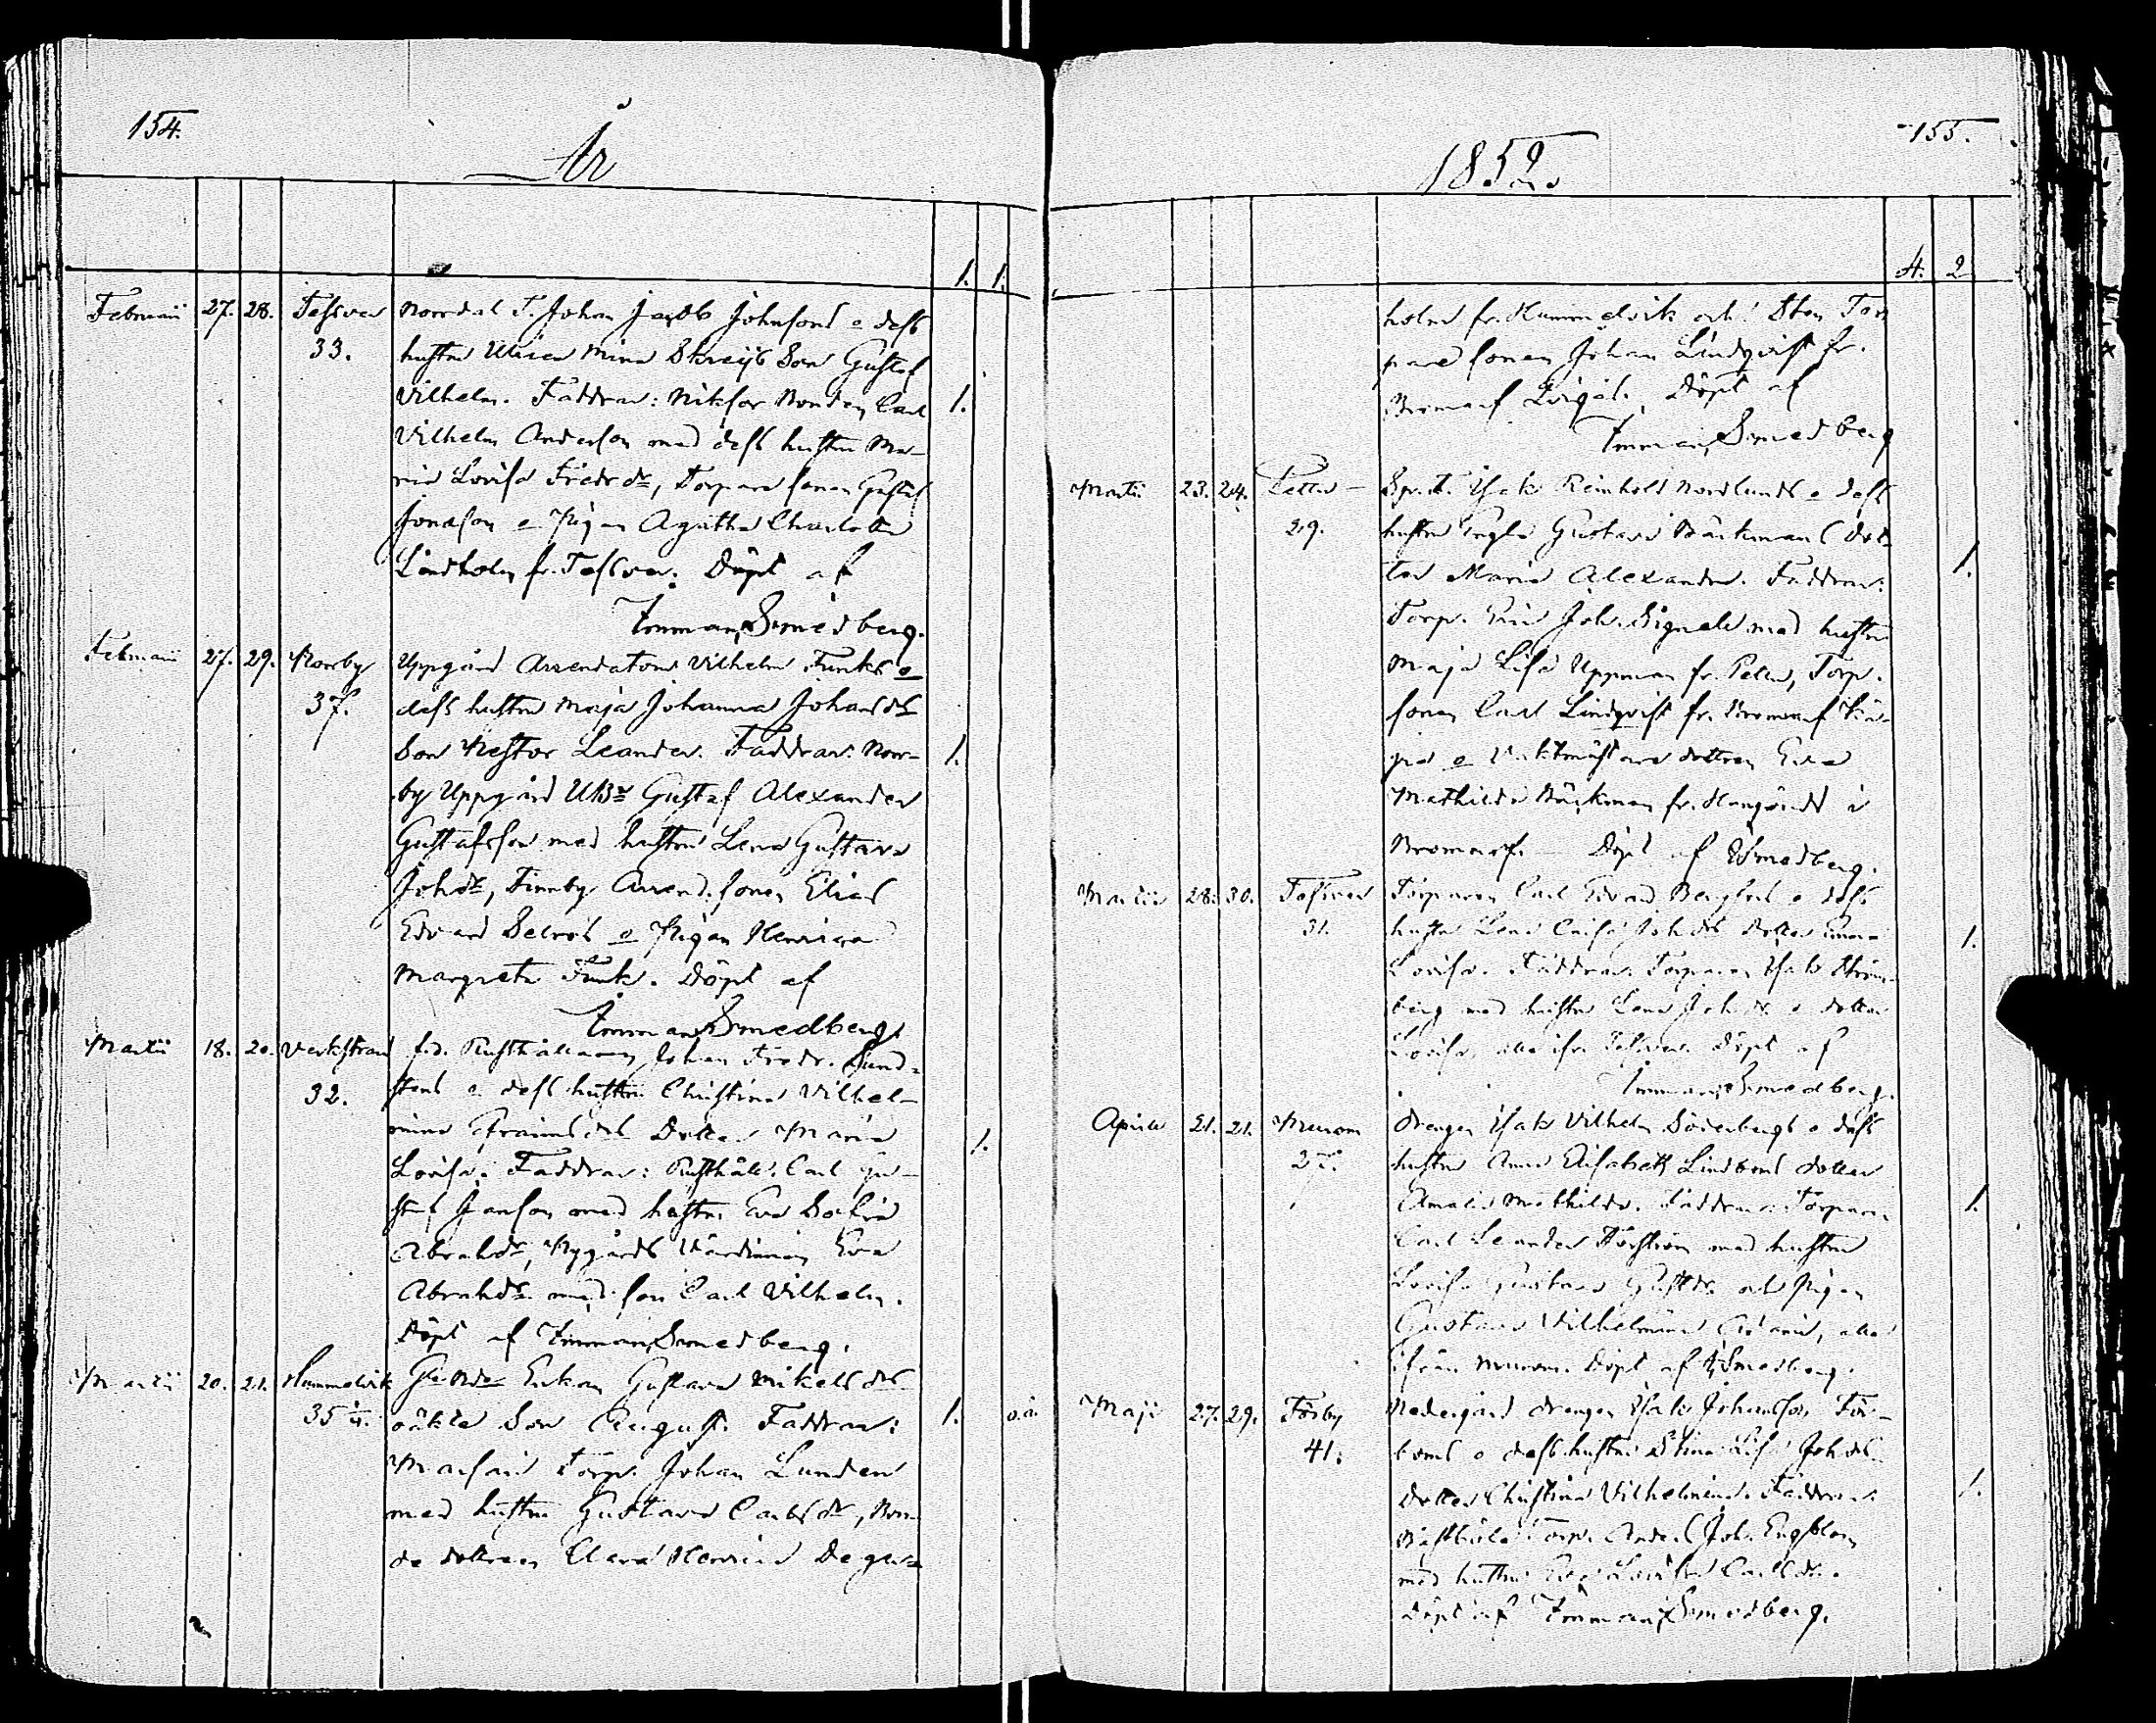 154.
År
1. 1.
Februarii 27. 28. Tessvar Norrdal T. Johan Jacob Johnsons o dess
33. hustru Ulrica Mina Son Gustaf
Vilhelm. Faddrar: Niksor Bonden Carl 1.
Vilhelm Anderson med dess hustru Ma-
ria Lovisa Fredrdr, Torpare sonen Gustaf
Jonason o Pigan Agatha Charlotta
Lindholm fr. Tessvar. Döpt af
Imman. Smedberg.
Februarii 27. 29. Norrby Uppgård Arrendatorn Vilhelm Funks o
37. dess hustru Maja Johanna Johansdrs
Son Nestor Leander. Faddrar: Norr- 1.
by Uppgård Gustaf Alexander
Gustafsson med hustru Lena Gustava
Johdr, Finnby Arrend. sonen Elias
Edvard o Pigan Henrica
Margreta Funk. Döpt af
Imman. Smedberg.
Martii 18. 20. Verkstran f.d. Rusthållaren Johan Fredr. Sund-
32. stens o dess hustru Christina Vilhel-
mina Efraimsdrs Dotter Maria 1.
Lovisa. Faddrar: Rusthåll. Carl Gu-
staf Janson med hustru Eva Sofia
Abrahdr, Nygårds Värdinnan Eva
Abrahdr med son Carl Vilhelm.
Döpt af Imman. Smedberg.
Martii 20. 21. Hummelvik Enkan Gustava Mikelsdrs
35 oäkta Son August. Faddrar: 1. o.ä.
Torp. Johan Lunden
med hustru Gustava Carlsdr, Bon-
de dottren Clara Henrica
1852.
155.
4. 2
holm fr. Hummelvik och Tor
pare sonen Johan Lindqvist fr.
Bromarf Döpt af
Imman. Smedberg
Martii 23. 24. Petter Isak Reinhold Nordlunds o dess
29. hustru Engla Gustava Bäckmans Dot-
ter Maria Alexandra. Faddrar: 1.
Torp. Eric Joh. Signell med hustru
Maja Lisa Uppman fr. Torp.
sonen Carl Lindqvist fr. Bromarf
o Vaktmästare dottren Eva
Mathilda Bäckman fr. Hangöudd i
Bromarf. Döpt af Smedberg.
Martii 28. 30. Tessvar Torparen Carl Edvard o dess
31. hustru Lena Caisa Johdrs Dotter 1.
Lovisa. Faddrar: Torparen Isak Ström-
berg med hustru Lena Johdr o dotter
Lovisa, alla ifr. Tessvar. Döpt af
Imman. Smedberg.
Aprilis 21. 21. Murom Drengen Isak Vilhelm Söderbergs o dess
27. hustru Anna Elisabeth Lindboms dotter
Amalia Mathilda. Faddrar: Torparen 1.
Carl Leander med hustru
Lovisa Gustava Gustdr och Pigan
Gustava Vilhelmina alla
ifrån Murom. Döpt af Smedberg.
Maji 27. 29. Förby Nedergård drengen Isak Johansson För-
41. boms o dess hustru Stina Lisa Johdrs
Dotter Christina Vilhelmina. Faddrar: 1.
Torp. Anders Joh. Engblom
med hustru Lovisa Carlsdr.
Döpt af Imman. Smedberg.